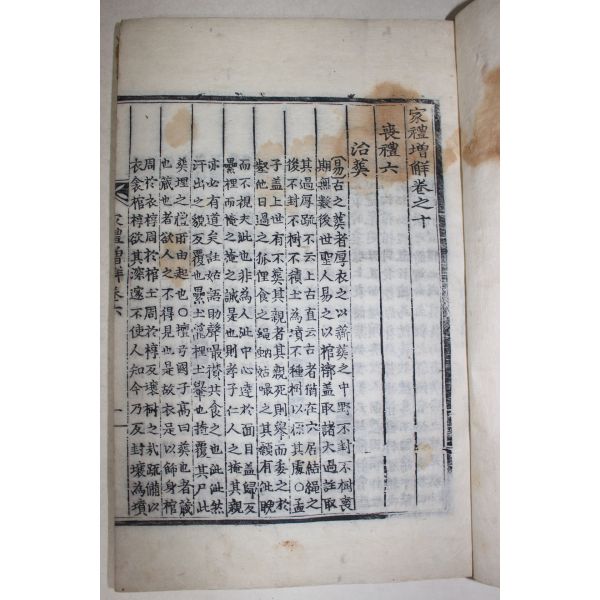 家禮增解卷之十
喪禮六
治葬
易古之葬者厚衣之以薪葬之中野不封不樹喪
期無數後世聖人易之以棺槨盖取諸大過註取
其過厚疏不云上古直云古者猶在穴居結繩之
後不封不樹不積土為墳不種樹以標其處〇孟
子盖上世有不葬其親者其親死則擧而委之於
壑他日過之狐狸食之蠅蚋姑嘬之其顙有泚睨
而不視夫泚也非為人泚中心達於面目盖歸反
虆梩而掩之掩之誠是也則孝子仁人之掩其親
亦必有道矣註姑語助聲嘬攢共食之也泚泚然
汗出之貌反覆也虆土籠梩土轝也掩覆其尸此
葬埋之禮所由起也〇壇弓國子高曰葬也者藏
也藏也者欲人之不得見也是故衣足以飾身棺
周於衣槨周於棺土周於槨反壤樹之哉疏備以
衣衾棺槨欲其深邃不使人知今乃反封壤為墳
家禮增解卷六
一